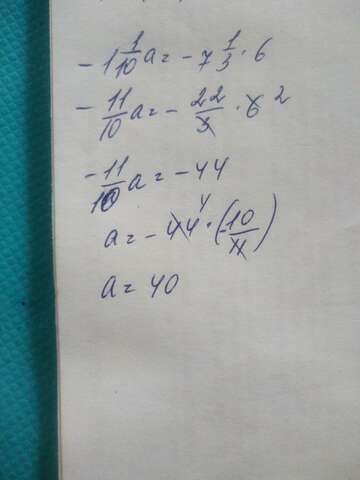 -1 1/10 a = -7 1/3 · 6
-11/10 a = -22/3 · 6 2
-11/10 a = -44
a = -44 4 · (-10/11)
a = 40